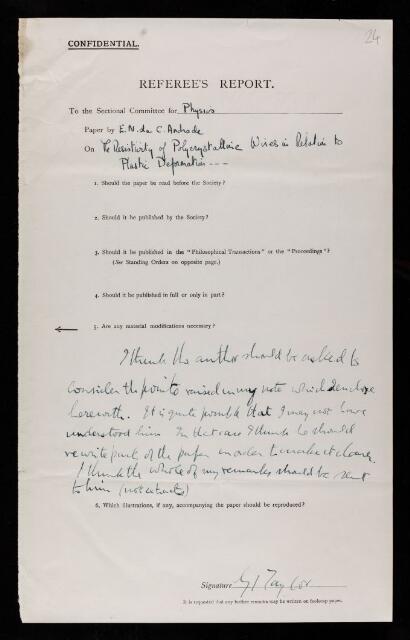 24
CONFIDENTIAL.
REFEREE'S REPORT.
To the Sectional Committee for Physics
Paper by E. N. da C. Andrade
On The Resistivity of Polycrystalline Wires in Relation to
Plastic Deformation ---
1. Should the paper be read before the Society?
2. Should it be published by the Society?
3. Should it be published in the "Philosophical Transactions" or the "Proceedings"?
(See Standing Orders on opposite page.)
4. Should it be published in full or only in part?
5. Are any material modifications necessary?
I think the author should be asked to
consider the points raised in my note which I enclose
herewith. It is quite possible that I may not have
understood him. In that case I think he should
rewrite part of the paper in order to make it clearer.
I think the whole of my remarks should be sent
to him (not extracts)
6. Which illustrations, if any, accompanying the paper should be reproduced?
Signature G I Taylor
It is requested that any further remarks may be written on foolscap paper.